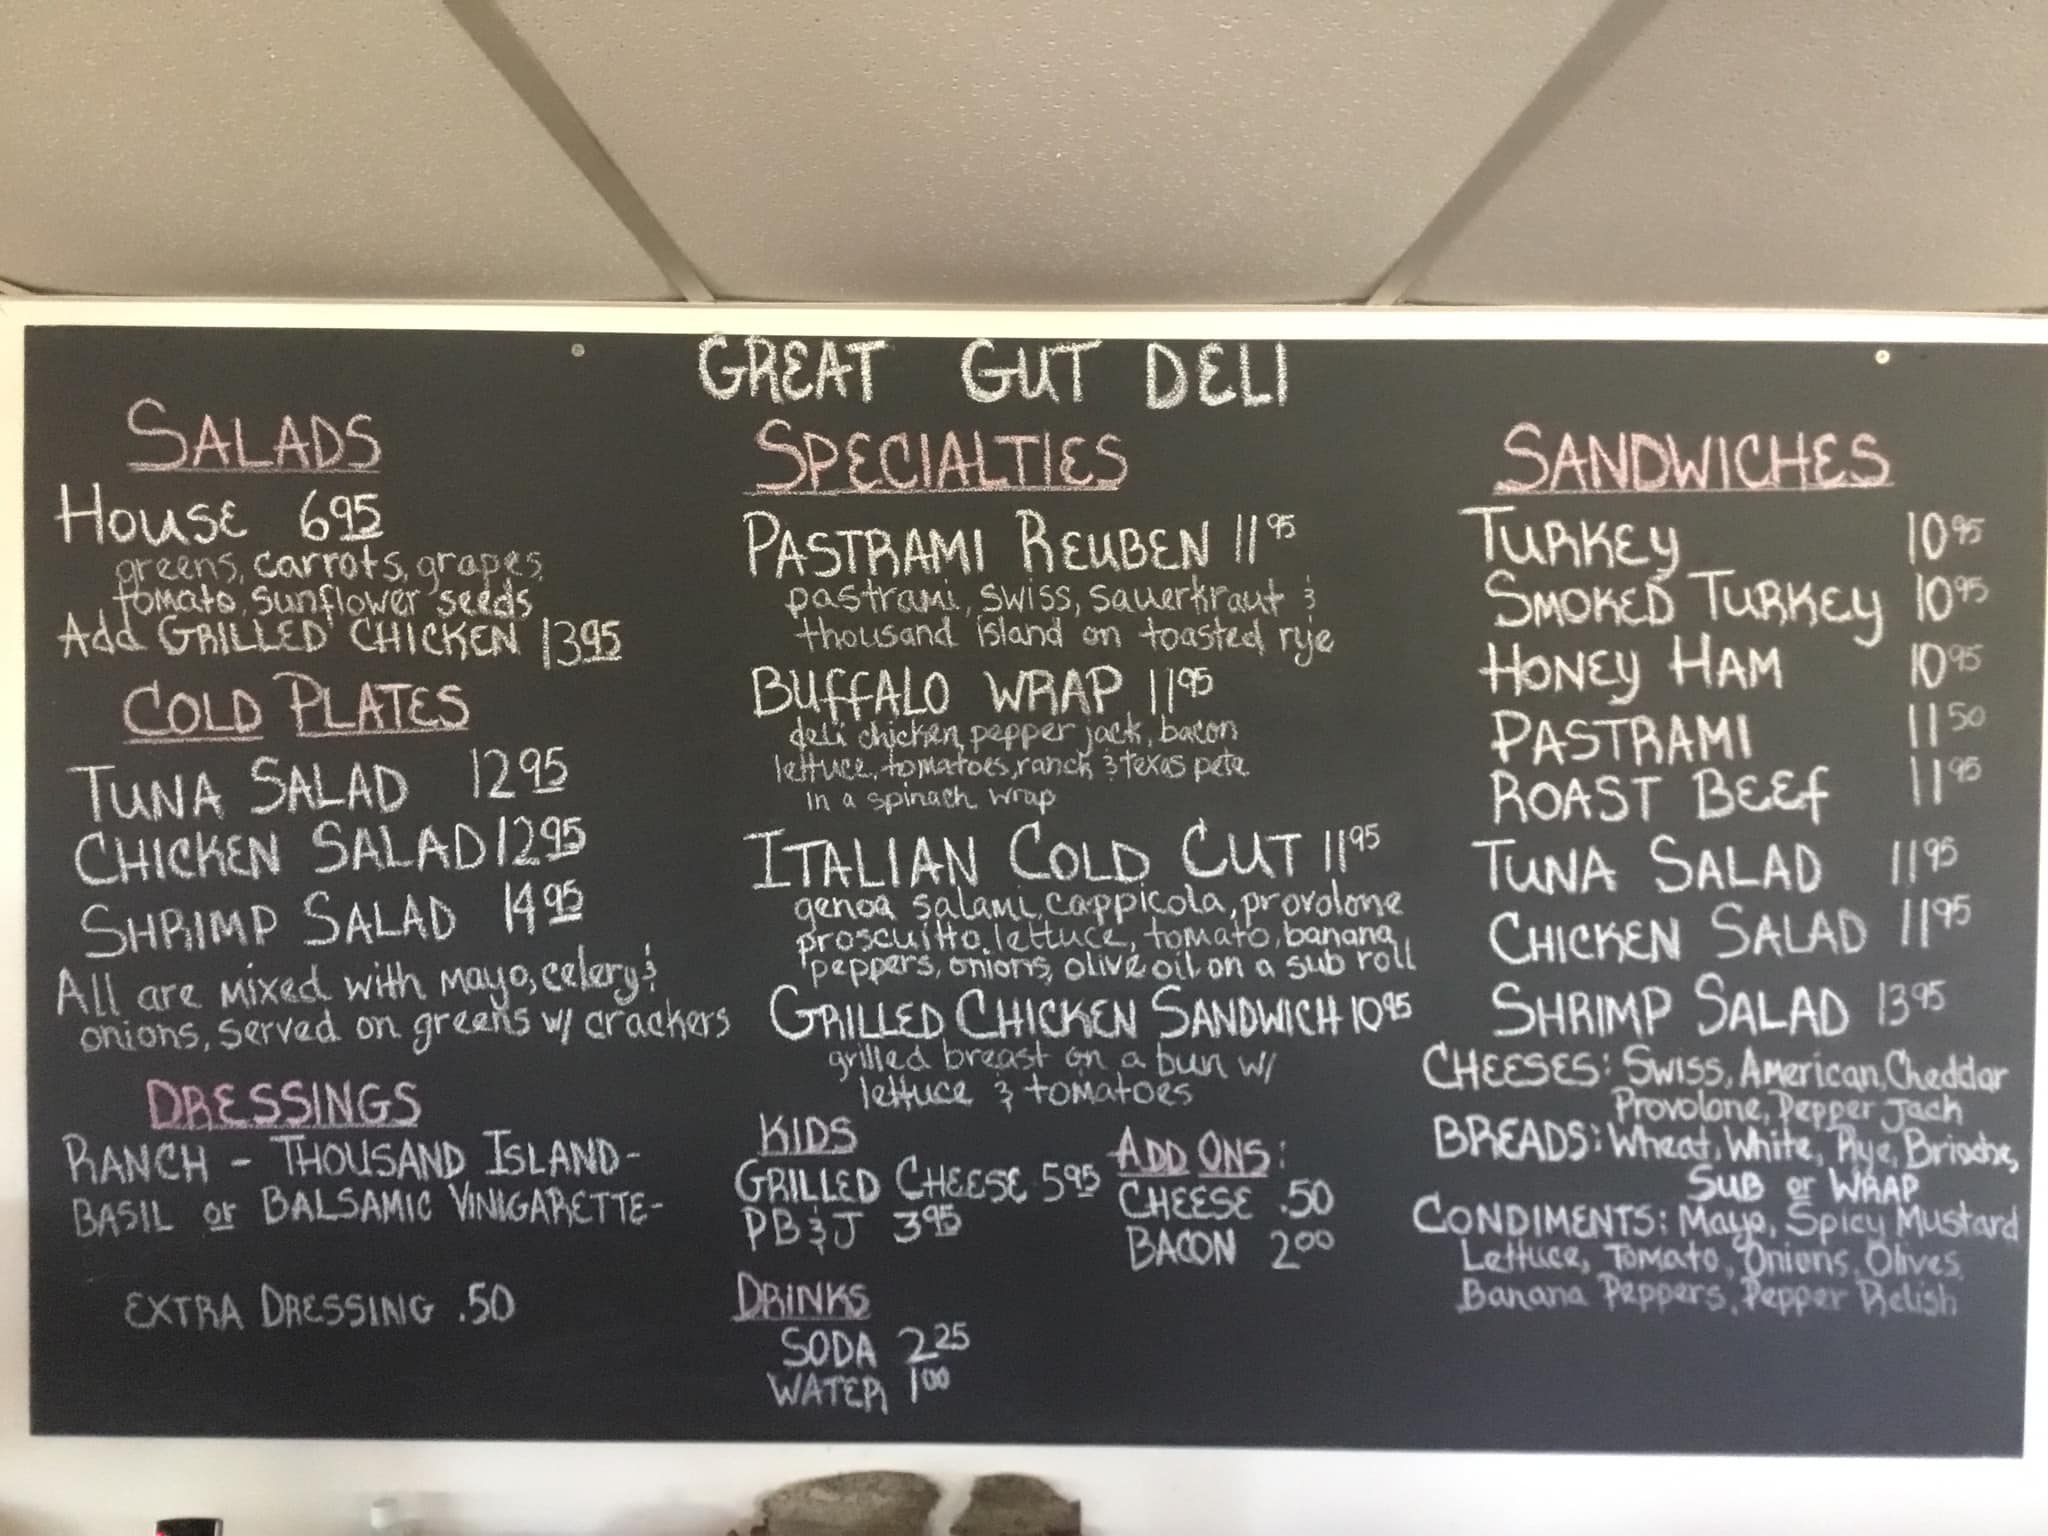 GREAT GUT DELI
SALADS
HOUSE 6.95
greens, carrots, grapes,
tomato, sunflower seeds
Add GRILLED CHICKEN 13.95
COLD PLATES
TUNA SALAD 12.95
CHICKEN SALAD 12.95
SHRIMP SALAD 14.95
All are mixed with mayo, celery &
onions, served on greens w/ crackers
DRESSINGS
RANCH - THOUSAND ISLAND-
BASIL or BALSAMIC VINIGARETTE-
EXTRA DRESSING .50
SPECIALTIES
PASTRAMI REUBEN 11.95
pastrami, swiss, sauerkraut &
thousand island on toasted rye
BUFFALO WRAP 11.95
deli chicken, pepper jack, bacon
lettuce, tomatoes, ranch & texas pete
in a spinach wrap
ITALIAN COLD CUT 11.95
genoa salami, cappicola, provolone
proscuitto, lettuce, tomato, banana
peppers, onions, olive oil, on a sub roll
GRILLED CHICKEN SANDWICH 10.95
grilled breast on a bun w/
lettuce & tomatoes
KIDS
GRILLED CHEESE 5.95
PB & J 3.95
ADD ONS:
CHEESE .50
BACON 2.00
DRINKS
SODA 2.25
WATER 1.00
SANDWICHES
TURKEY 10.95
SMOKED TURKEY 10.95
HONEY HAM 10.95
PASTRAMI 11.50
ROAST BEEF 11.95
TUNA SALAD 11.95
CHICKEN SALAD 11.95
SHRIMP SALAD 13.95
CHEESES: Swiss, American, Cheddar
Provolone, Pepper Jack
BREADS: Wheat, White, Rye, Brioche,
SUB or WRAP
CONDIMENTS: Mayo, Spicy Mustard
Lettuce, Tomato, Onions, Olives
Banana Peppers, Pepper Relish